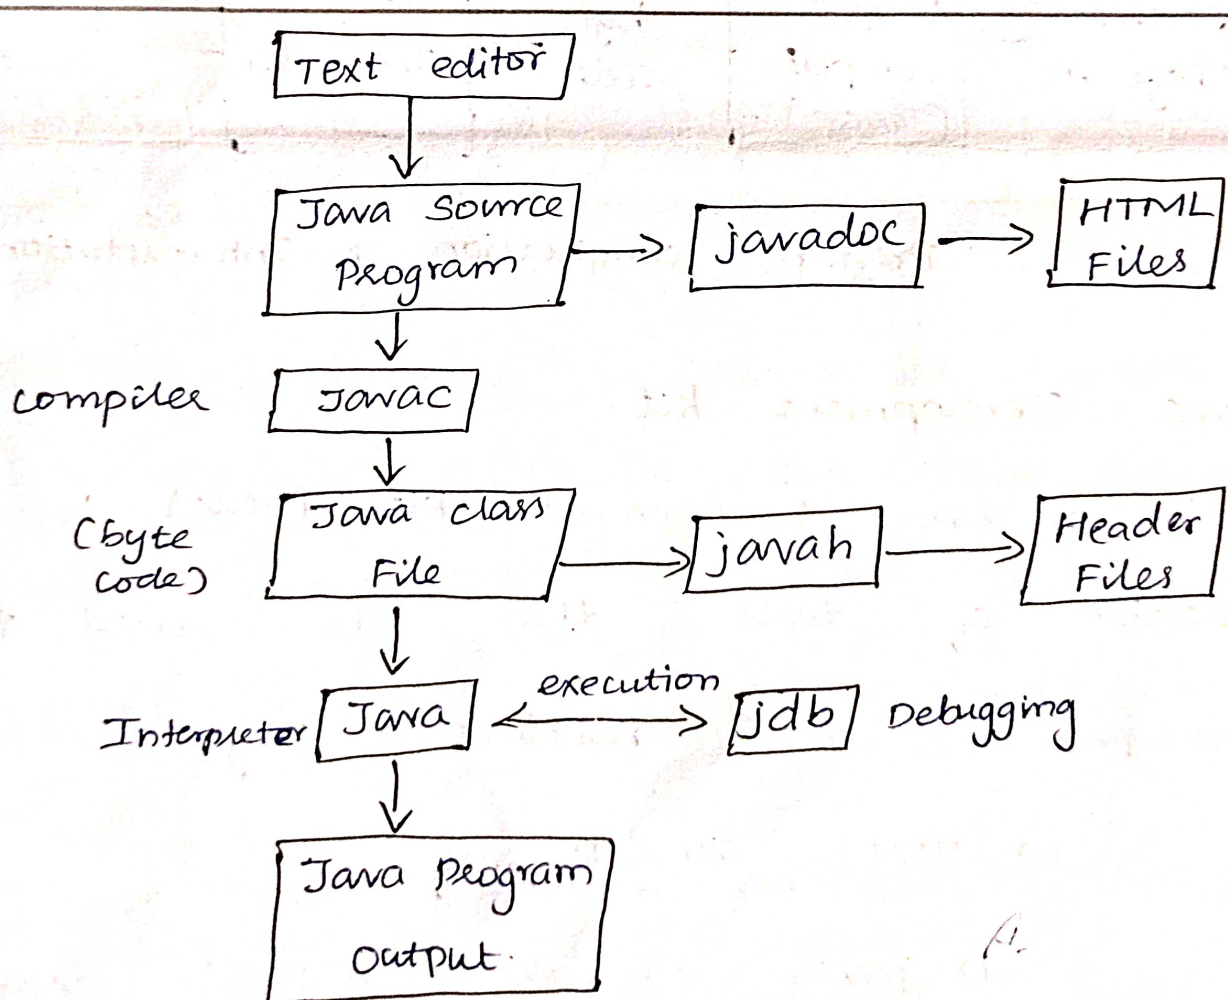 Text editor
Java Source
Program
javadoc
HTML
Files
compiler
Javac
(byte
code)
Java class
File
javah
Header
Files
Interpreter
Java
execution
jdb
Debugging
Java Program
Output.